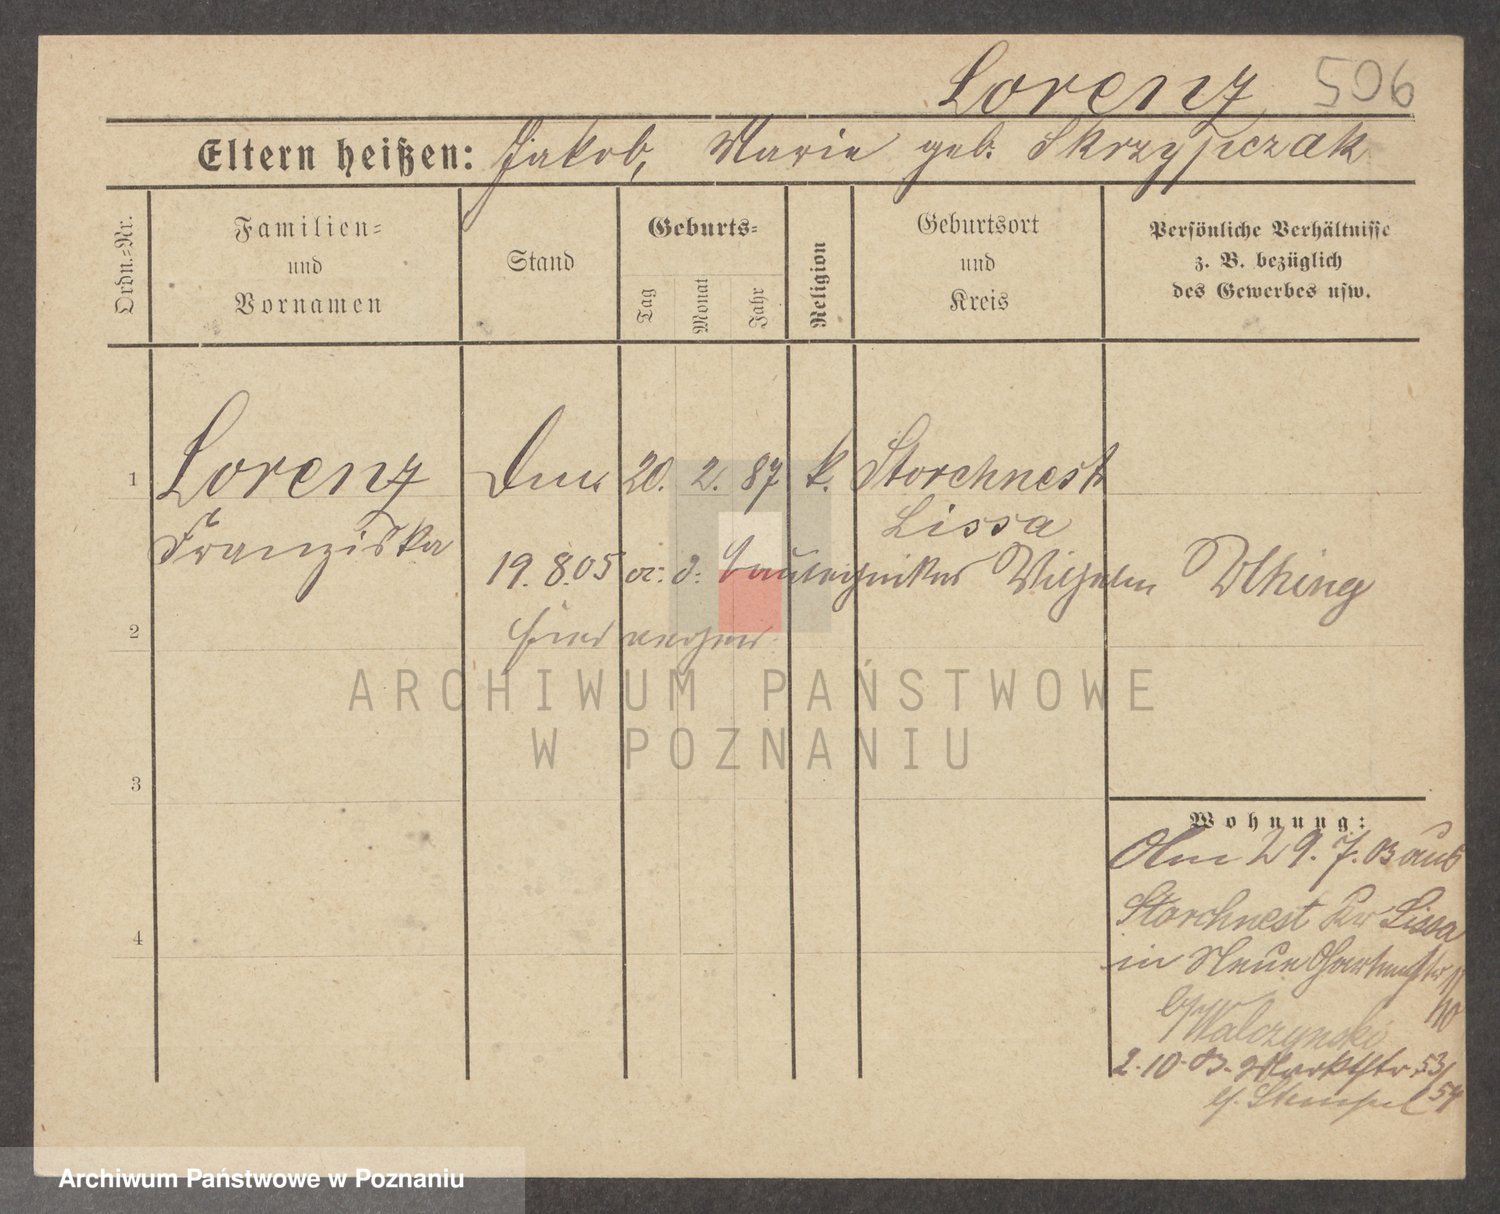 Lorenz 506
Eltern heißen: Jakob, Marie geb. Skrzypczak
Ordn.-Nr.
Familien-
und
Vornamen
Stand
Geburts-
Tag
Monat
Jahr
Religion
Geburtsort
und
Kreis
Persönliche Verhältnisse
z. B. bezüglich
des Gewerbes usw.
1 Lorenz 20. 2. 87 k. Storchnest
Lissa
Franziska
19. 8. 05 Bautechniker Wilhelm
2
3
4
Wohnung:
Am 29. 7. 03 aus
Storchnest Kr Lissa
in Neue Gartenstr
b/ Walczynski
2. 10. 03. Marktstr 53/
54
b/. Stempel
ARCHIWUM PAŃSTWOWE
W POZNANIU
Archiwum Państwowe w Poznaniu